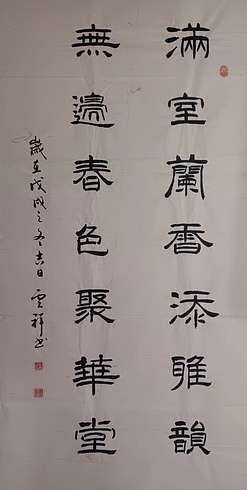 滿室蘭香添雅韻
無邊春色聚華堂
歲在戊戌之冬吉日雲祥書